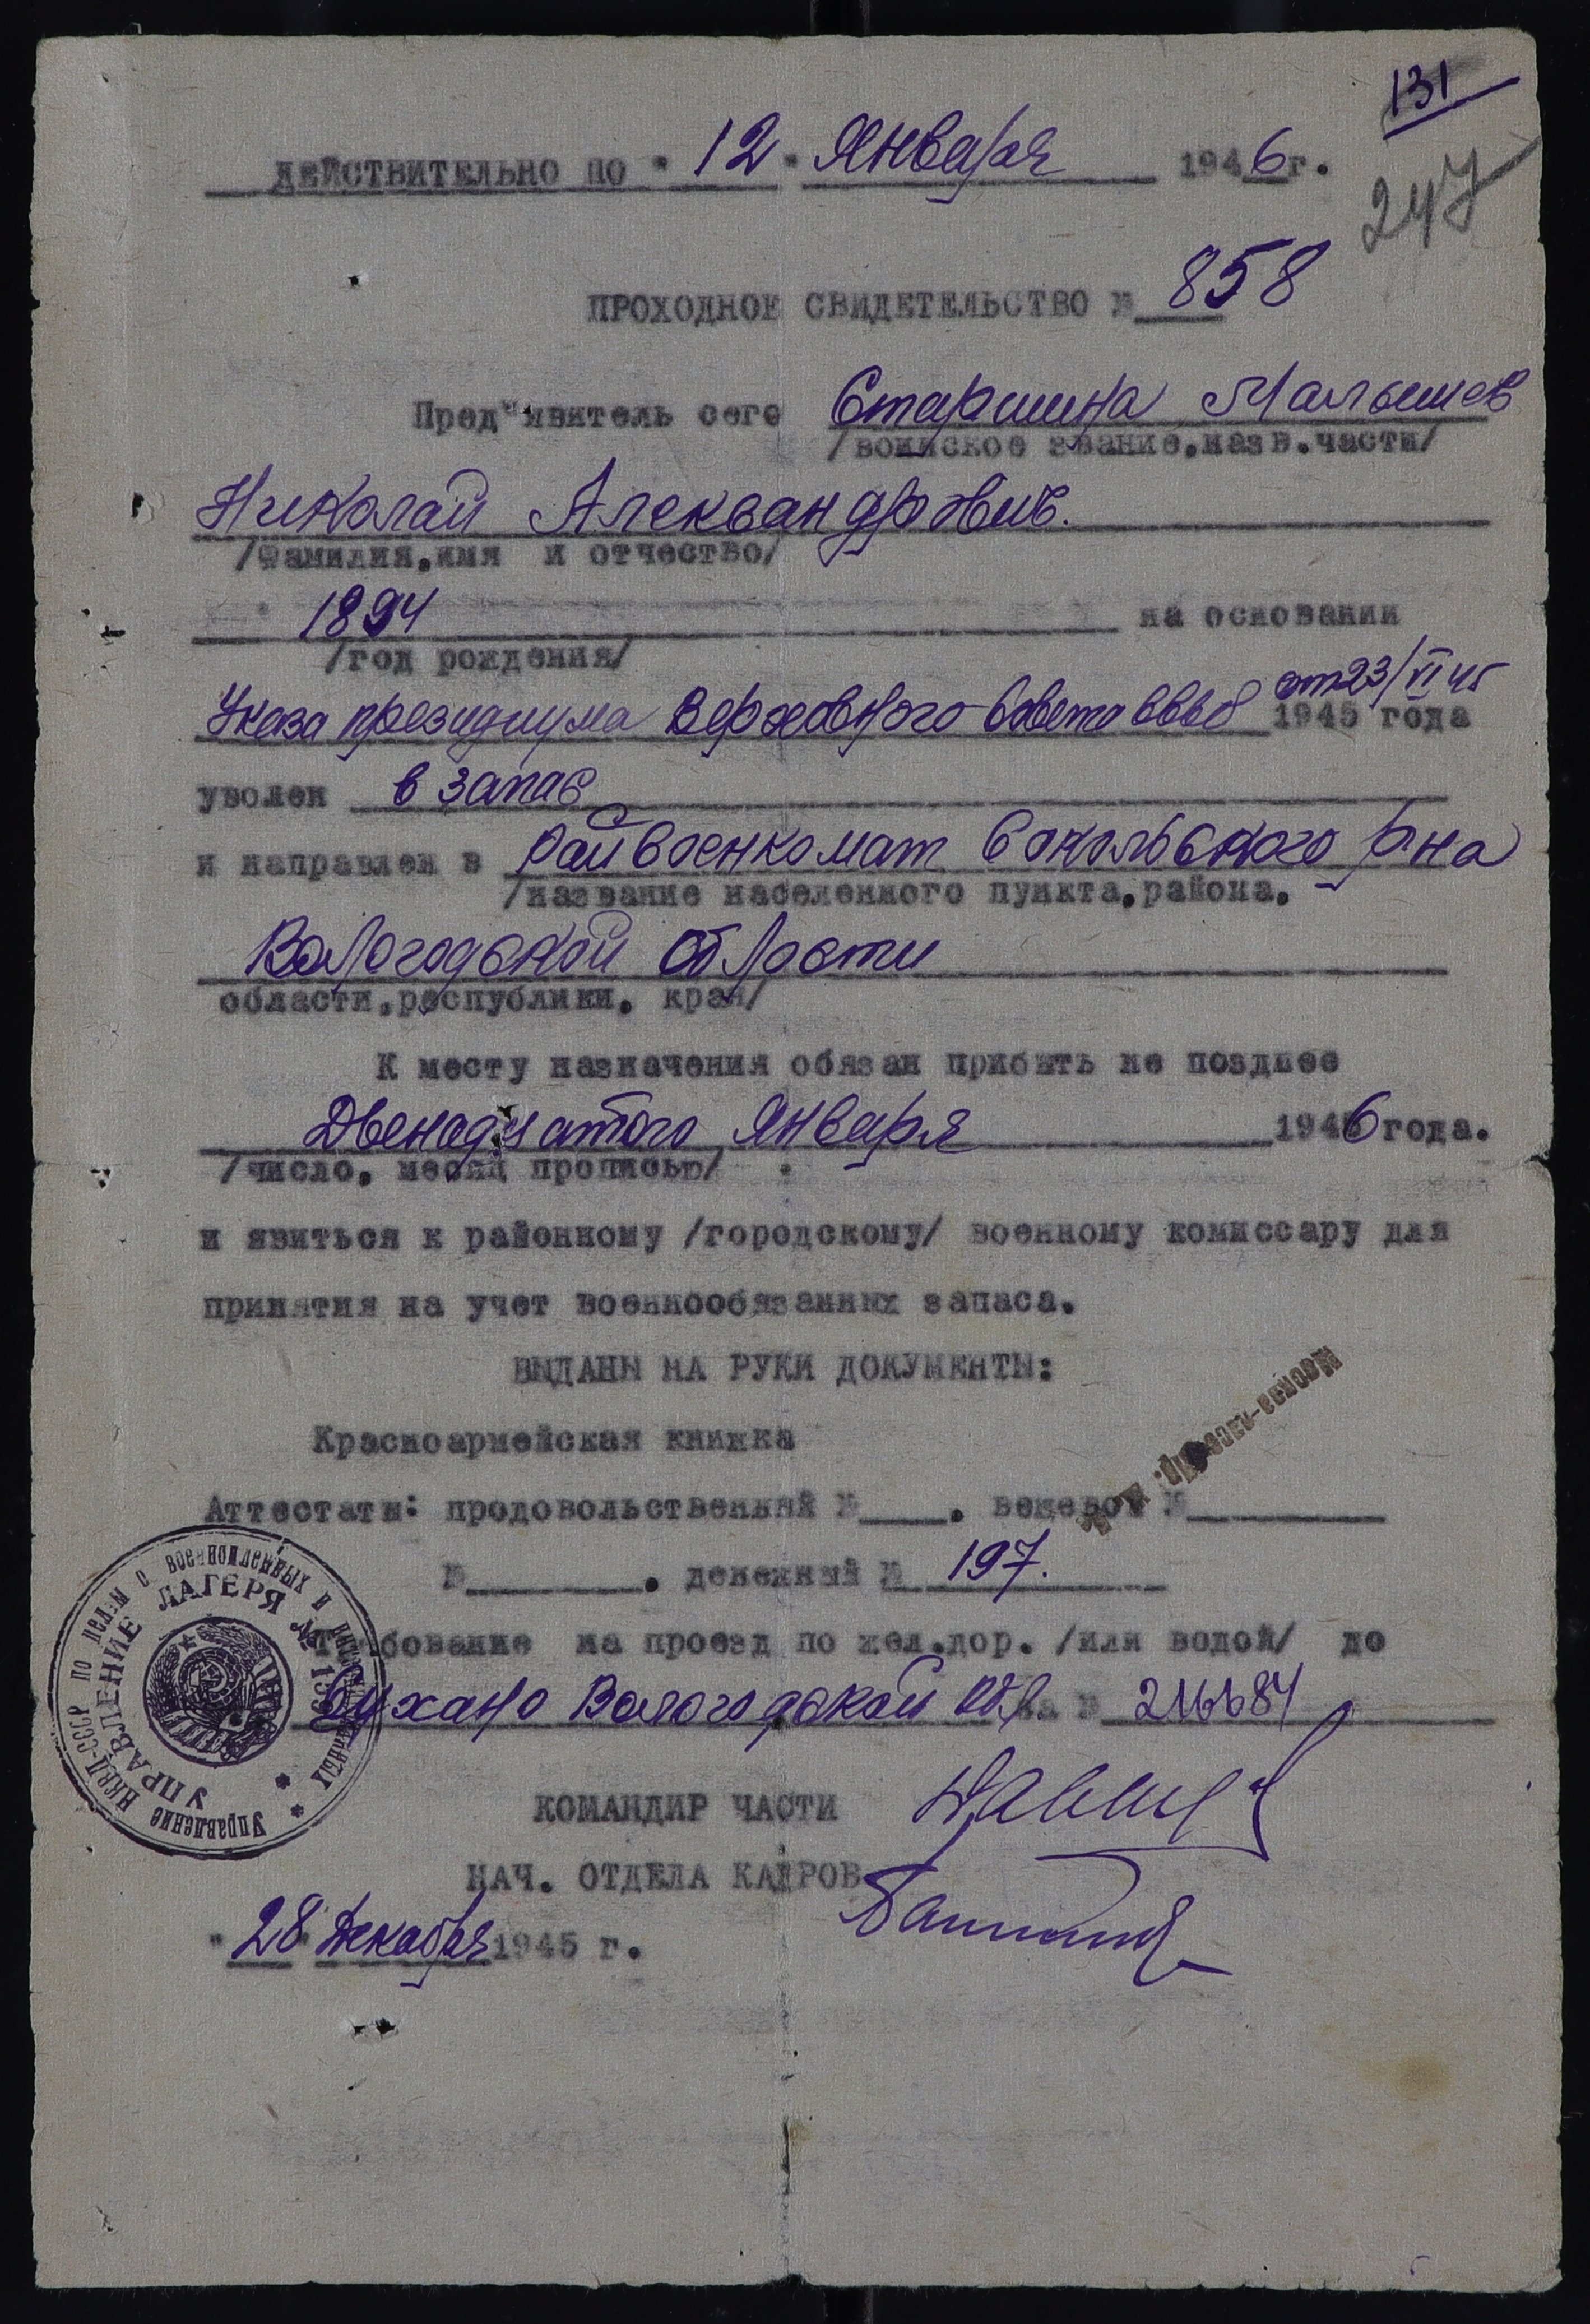 131
247
ДЕЙСТВИТЕЛЬНО ПО " 12 " Января 1946 г.
ПРОХОДНОЕ СВИДЕТЕЛЬСТВО № 858
Пред"явитель сего Старшина Малышев
/воинское звание,назв.части/
Николай Александрович.
/Фамилия,имя и отчество/
1894 на основании
/год рождения/
от 23/VI 45
Указа президиума Верховного Совета СССР 1945 года
уволен в запас
и направлен в райвоенкомат Сокольского р-на
/название населенного пункта,района,
Вологодской области
области,республики, края/
К месту назначения обязан прибыть не позднее
Двенадцатого января 1946 года.
/число, месяц прописью/
и явиться к районному /городскому/ военному комиссару для
принятия на учет военнообязанных запаса.
ВЫДАНЫ НА РУКИ ДОКУМЕНТЫ:
Красноармейская книжка
Аттестаты: продовольственный № , вещевой №
№ , денежный № 197.
Требование на проезд по жел.дор. /или водой/ до
Сухано Вологодской обл за № 216684
КОМАНДИР ЧАСТИ
НАЧ. ОТДЕЛА КАДРОВ
" 28 " Декабря 1945 г.
Управление НКВД-СССР по делам о военнопленных и интернированных
УПРАВЛЕНИЕ ЛАГЕРЯ №